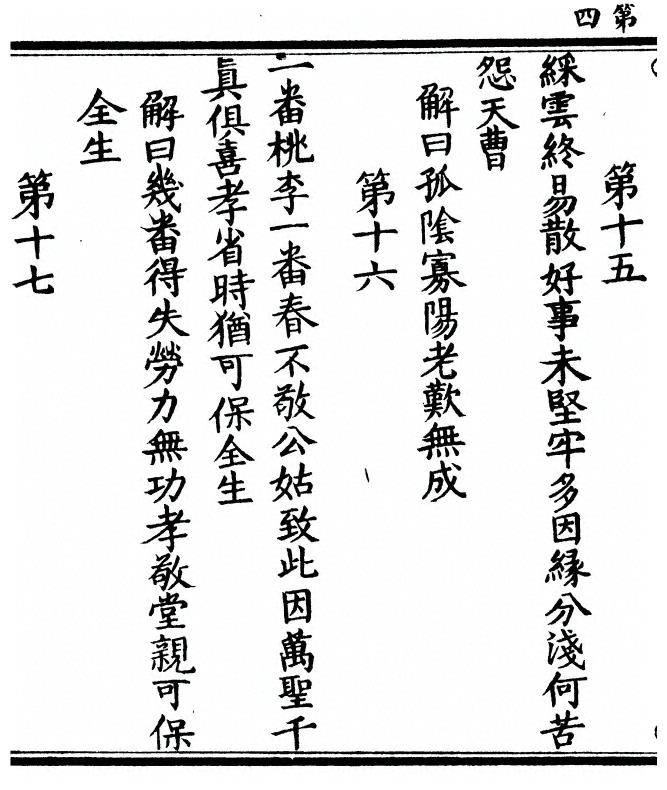 第四
第十五
綵雲終易散好事未堅牢多因縁分淺何苦
怨天曹
解曰孤陰寡陽老歎無成
第十六
一番桃李一番春不敬公姑致此因萬聖千
眞俱喜孝省時猶可保全生
解曰幾番得失勞力無功孝敬堂親可保
全生
第十七